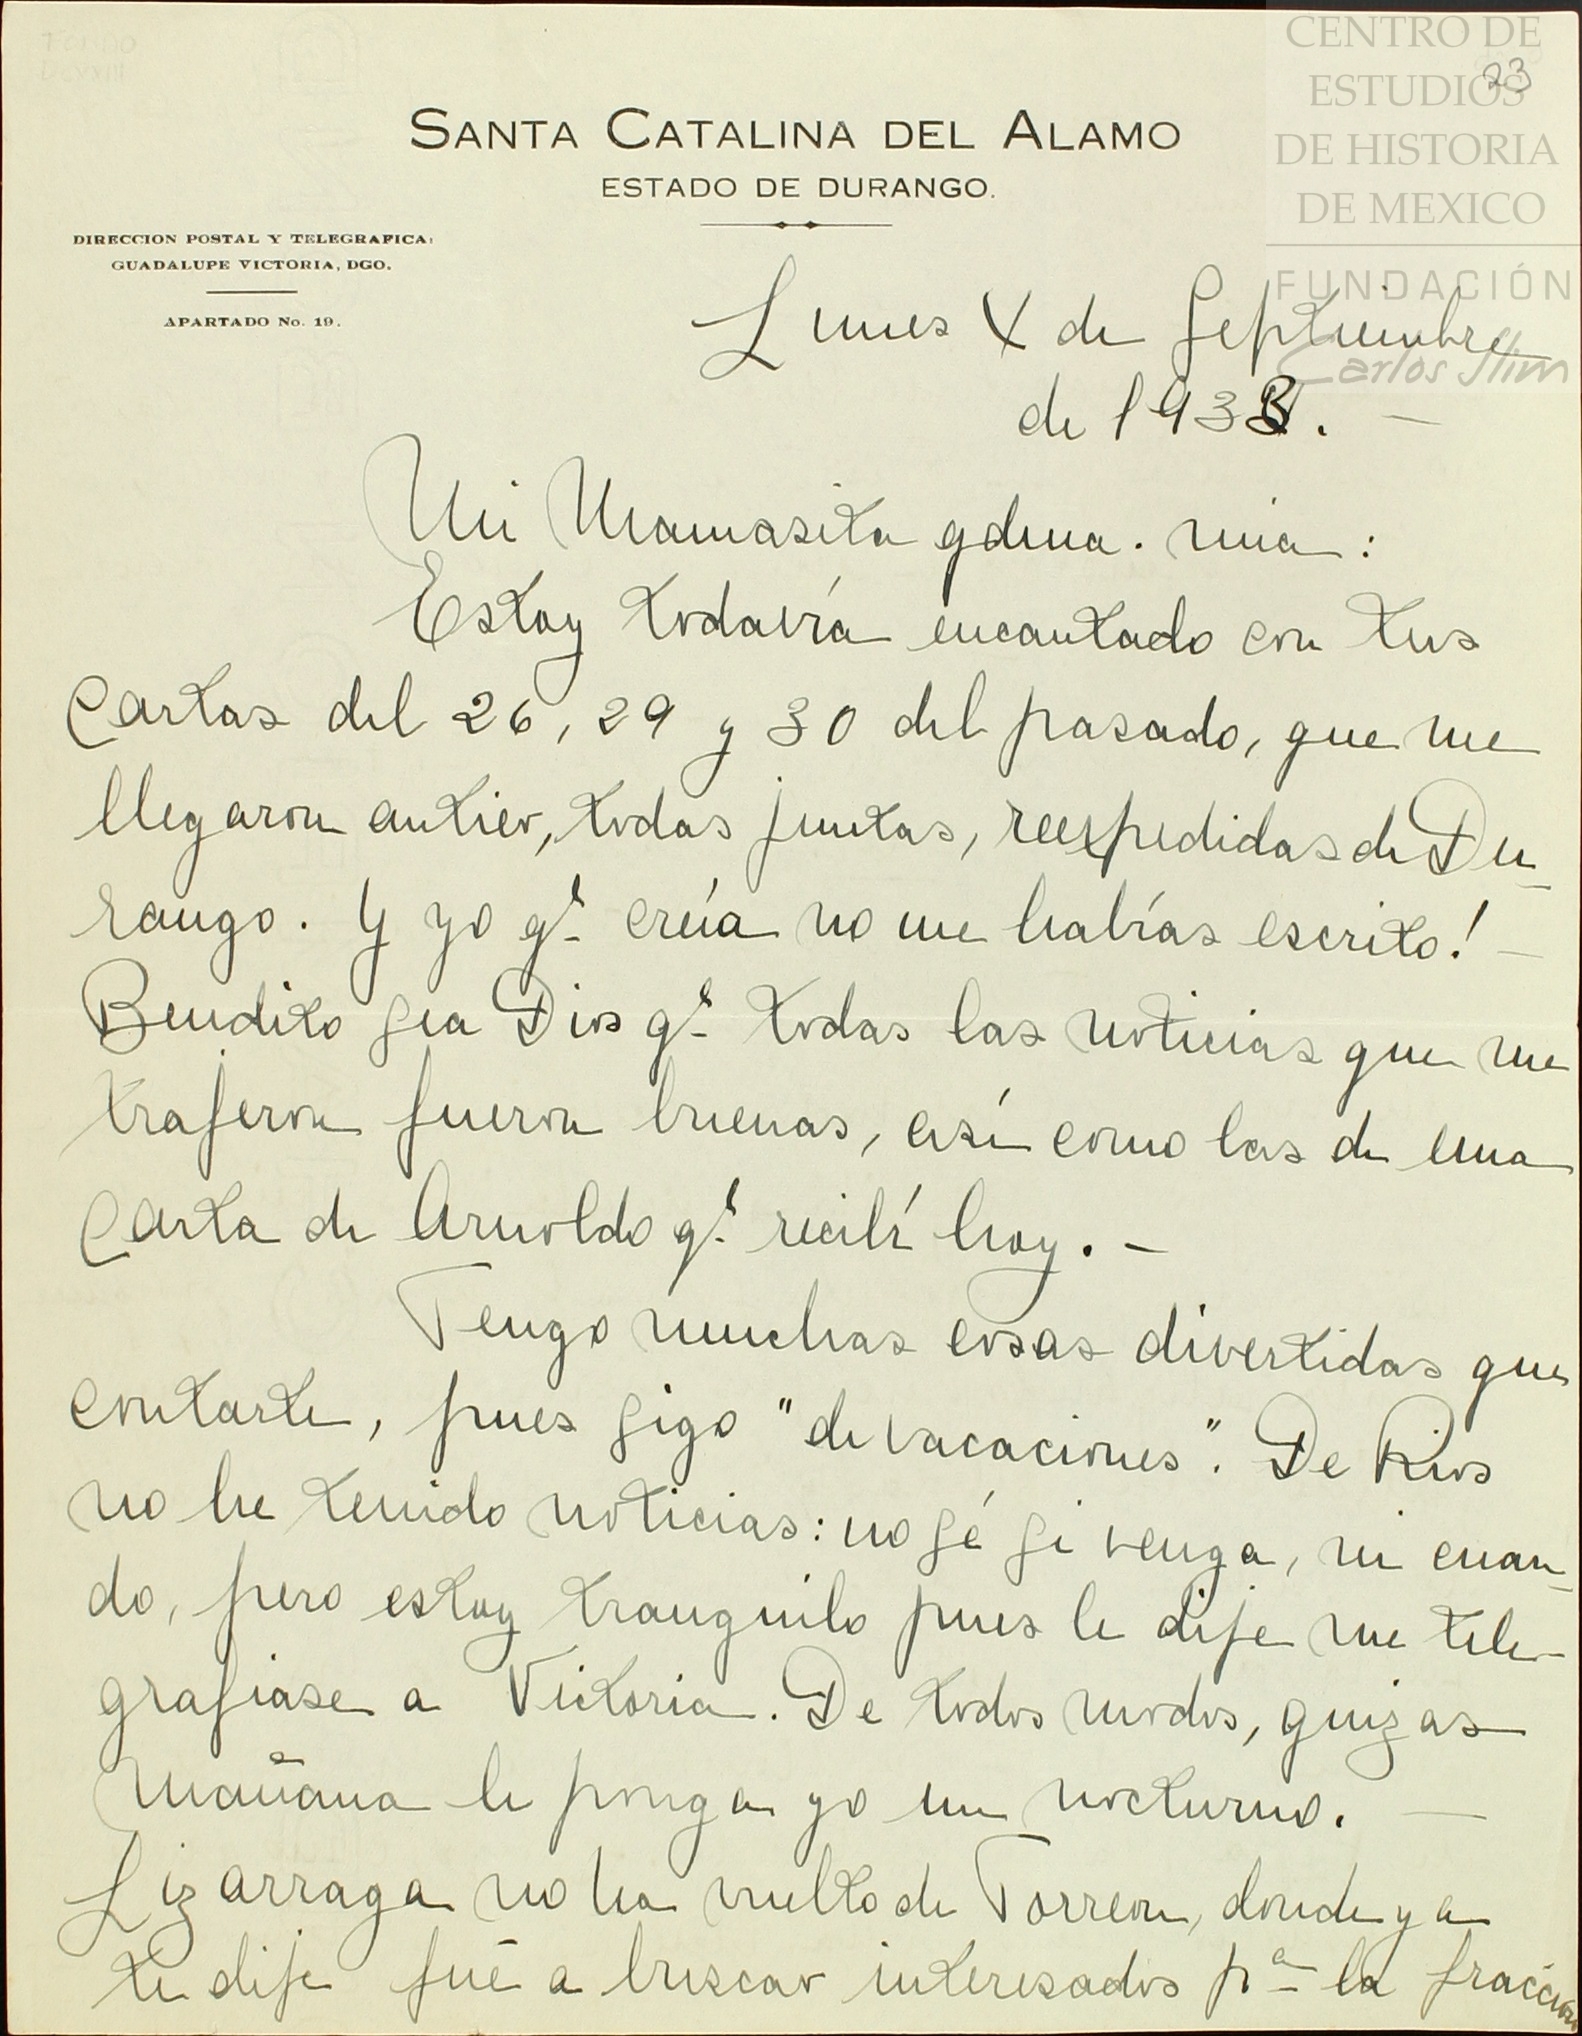 CENTRO DE
ESTUDIOS
DE HISTORIA
DE MEXICO
FUNDACIÓN
Carlos Slim
23
SANTA CATALINA DEL ALAMO
ESTADO DE DURANGO.
DIRECCION POSTAL Y TELEGRAFICA:
GUADALUPE VICTORIA, DGO.
APARTADO No. 19.
Lunes 4 de Septiembre
de 1933. —
Mi Mamasita qdma. mia:
Estoy todavía encantado con tus
cartas del 26, 29 y 30 del pasado, que me
llegaron antier, todas juntas, reexpedidas de Du-
rango. Y yo qe. creía no me habías escrito! —
Bendito sea Dios qe. todas las noticias que me
trajeron fueron buenas, así como las de una
carta de Arnoldo qe. recibí hoy. —
Tengo muchas cosas divertidas que
contarte, pues sigo "de vacaciones". De Rios
no he tenido noticias: no sé si venga, ni cuan-
do, pero estoy tranquilo pues le dije me tele-
grafiase a Victoria. De todos modos, quizas
mañana le ponga yo un nocturno. —
Lizarraga no ha vuelto de Torreon, donde ya
te dije fué a buscar interesados pa. la fracción